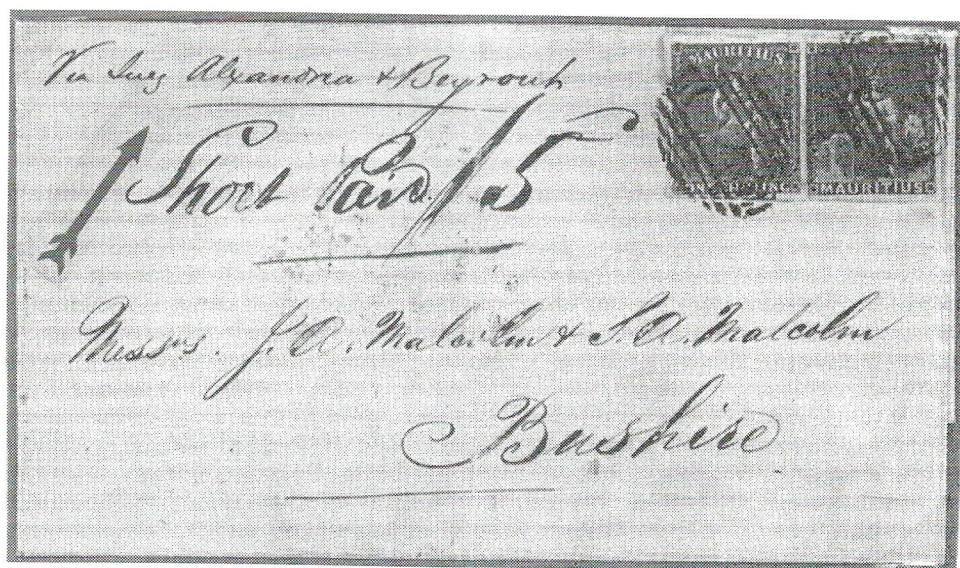 Via Suez Alexandria & Beyrout
Short Paid /5
Messrs. J. A. Malcolm & S. A. Malcolm
Bushire
MAURITIUS
MAURITIUS